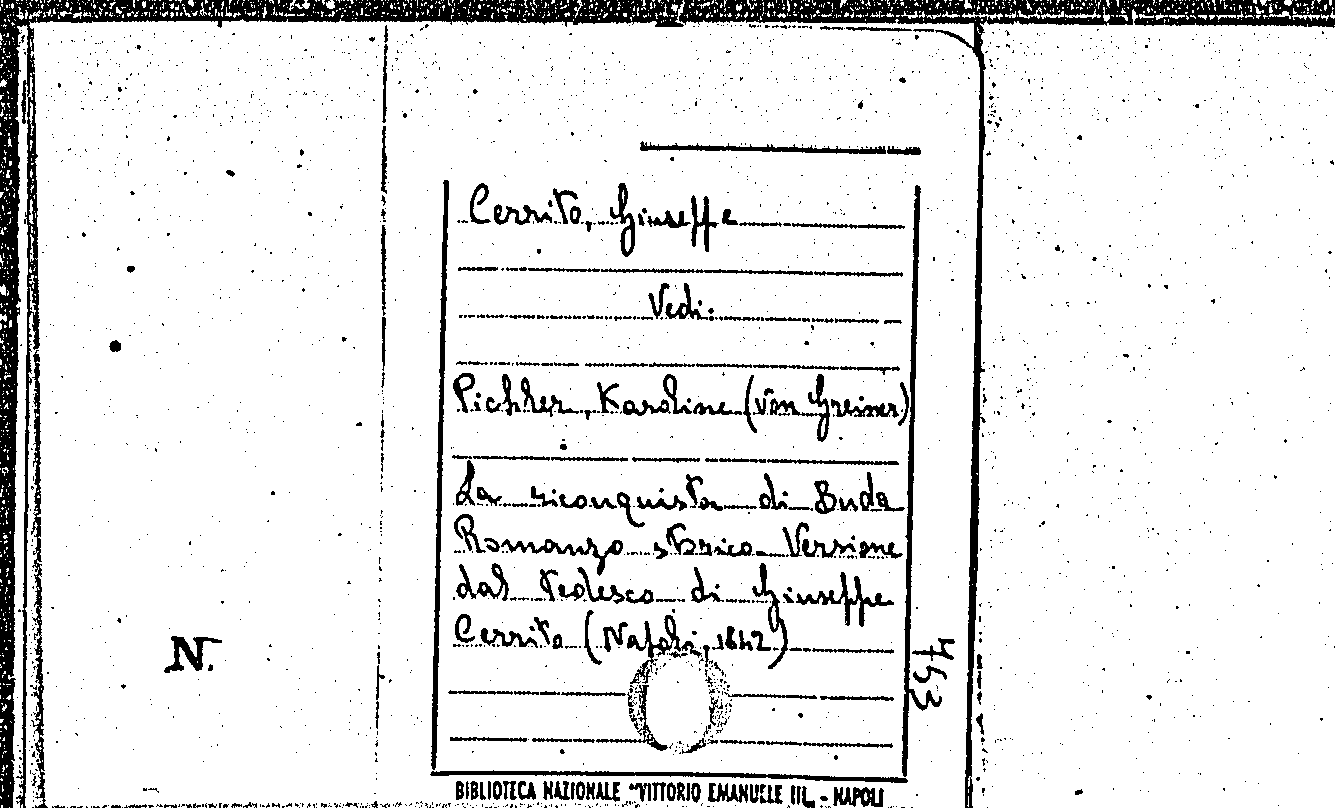 Cerrito, Giuseppe
Vedi:
Pichler, Karoline (von Greiner)
La riconquista di Buda
Romanzo storico. Versione
dal tedesco di Giuseppe
Cerrito (Napoli, 1842)
N.
453
BIBLIOTECA NAZIONALE "VITTORIO EMANUELE III„ - NAPOLI